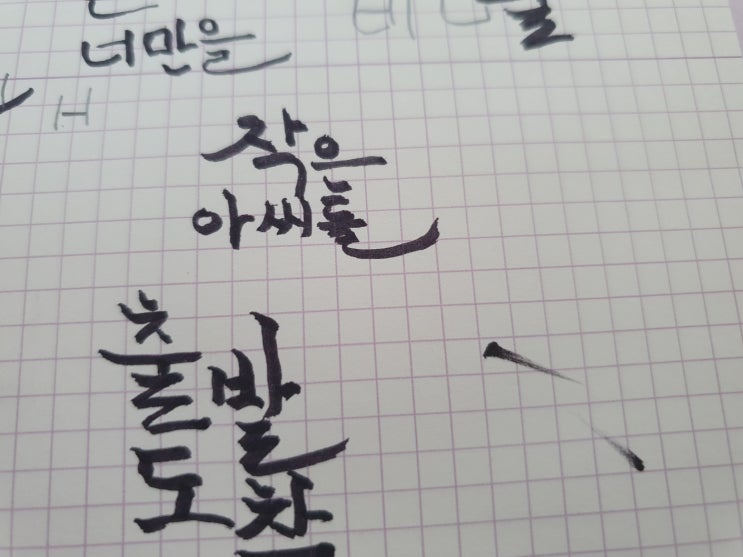 너만을
H
작은
아씨들
출발
도착